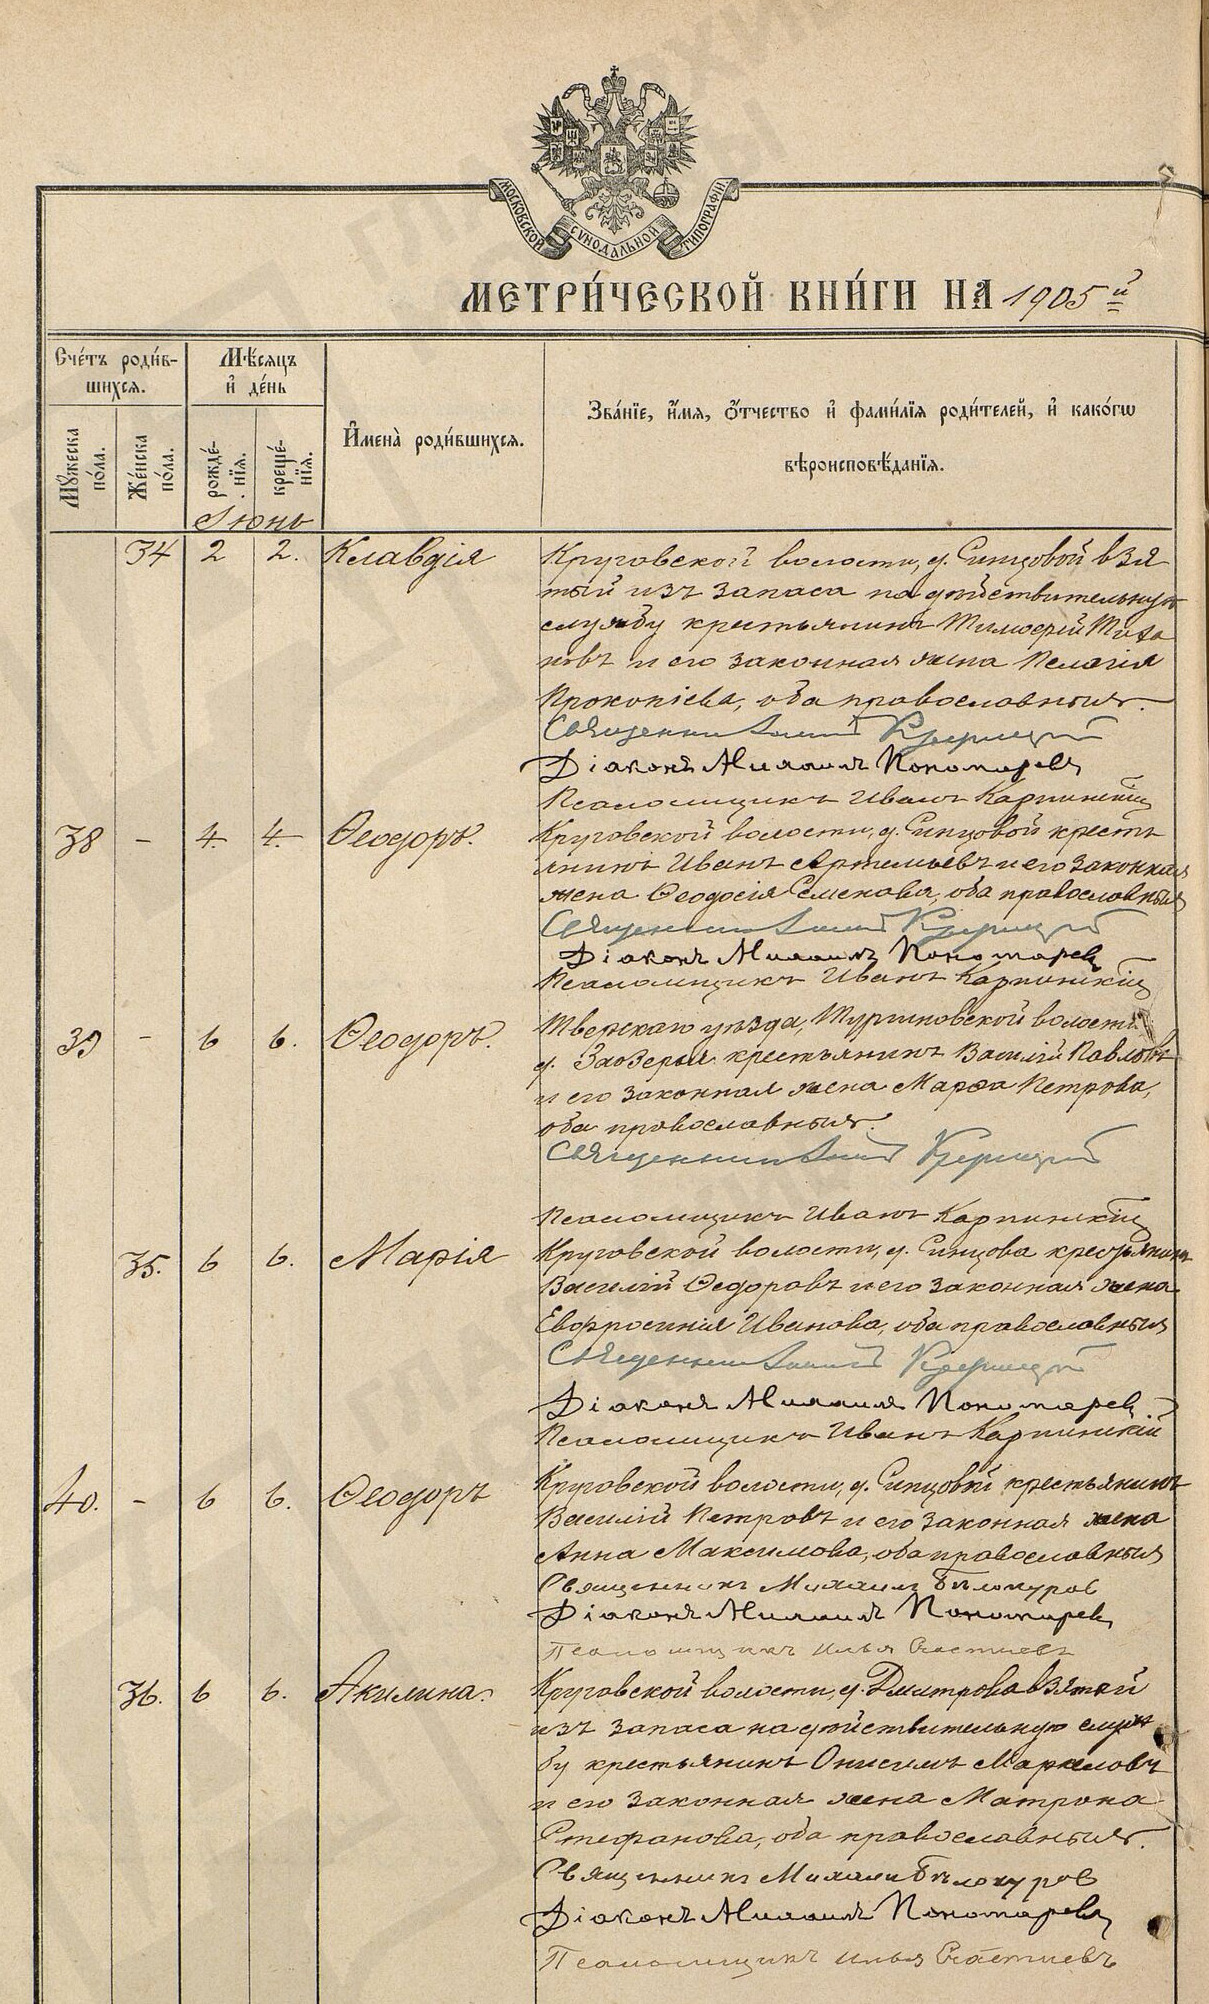 МОСКОВСКОЙ СѴНОДАЛЬНОЙ ТИПОГРАФІИ
МЕТРИ́ЧЕСКОЙ КНИ́ГИ НА 1905й
Сче́тъ роди́вшихся.
Мꙋ́жеска по́ла.
Же́нска по́ла.
Мѣ́сяцъ и де́нь
рожде́нїя.
креще́нїя.
Имена̀ роди́вшихся.
Зва́нїе, и́мя, о́тчество и фами́лїя роди́телей, и како́гѡ
вѣроисповѣ́данїя.
Іюнь
34 2 2. Клавдія
Круговской волости, д. Синцовой взя
тый изъ запаса на действительную
службу крестьянинъ Тимофей Тихо
новъ и его законная жена Пелагія
Прокопіева, оба православныя.
Священникъ
Діаконъ Михаилъ Пономаревъ
Псаломщикъ Иванъ Карпинскій
38 - 4. 4. Ѳеодоръ.
Круговской волости, д. Синцовой кресть
янинъ Иванъ Артемьевъ и его законная
жена Ѳеодосія Семенова, оба православныя
Священникъ
Діаконъ Михаилъ Пономаревъ
Псаломщикъ Иванъ Карпинскій
39 - 6 6. Ѳеодоръ.
Тверскаго уѣзда, Тургиновской волости
д. Заозерья крестьянинъ Василій Павловъ
и его законная жена Марѳа Петрова,
оба православныя.
Священникъ
Псаломщикъ Иванъ Карпинскій
35. 6 6. Марія
Круговской волости, д. Синцова крестьянинъ
Василій Ѳедоровъ и его законная жена
Евфросинія Иванова, оба православныя
Священникъ
Діаконъ Михаилъ Пономаревъ
Псаломщикъ Иванъ Карпинскій
40. - 6 6. Ѳеодоръ
Круговской волости, д. Синцовой крестьянинъ
Василій Петровъ и его законная жена
Анна Максимова, оба православныя
Священникъ Михаилъ Бѣлокуров
Діаконъ Михаилъ Пономаревъ
Псаломщикъ Илья Счастневъ
36. 6 6. Акилина.
Круговской волости, д. Дмитрова взятый
изъ запаса на действительную служ
бу крестьянинъ Онисимъ Маркеловъ
и его законная жена Матрона
Стефанова, оба православныя.
Священникъ Михаилъ Бѣлокуров
Діаконъ Михаилъ Пономаревъ
Псаломщикъ Илья Счастневъ